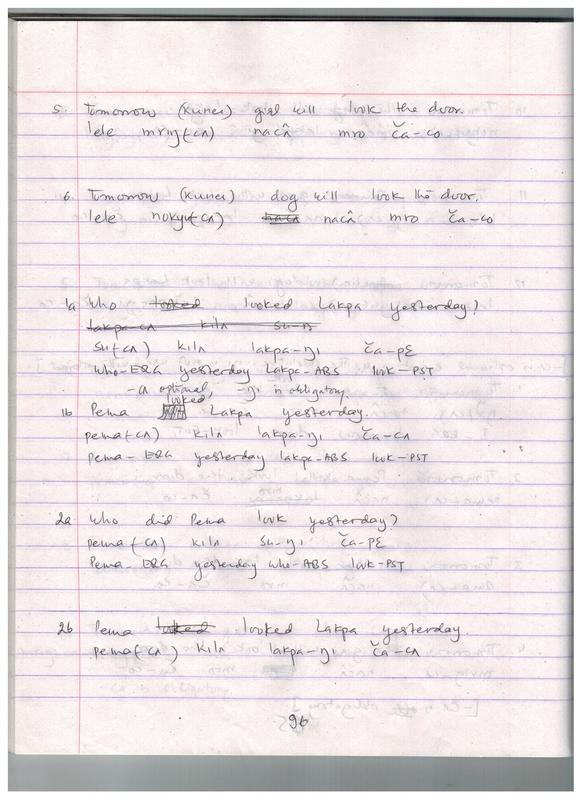 5. Tomorrow (Kunes) girl will look the door.
lele mriŋ(-cʌ) nacʌ̂ mro c̆a-co
6. Tomorrow (Kunes) dog will look the door.
lele nokyu(-cʌ) nacʌ̂ mro c̆a-co
1a Who looked Lakpa yesterday?
lakpa-cʌ kilʌ su-ŋ
su(-cʌ) kilʌ lakpa-ŋı c̆a-pɛ
who-ERG yesterday Lakpa-ABS look-PST
-cʌ optional, -ŋı is obligatory.
looked
1b Pema Lakpa yesterday.
pema(-cʌ) kilʌ lakpa-ŋı c̆a-cʌ
pema-ERG yesterday lakpa-ABS look-PST
2a Who did Pema look yesterday?
pema(-cʌ) kilʌ su-ŋı c̆a-pɛ
Pema-ERG yesterday who-ABS look-PST
2b Pema looked Lakpa yesterday.
pema(-cʌ) kilʌ lakpa-ŋı c̆a-cʌ
96